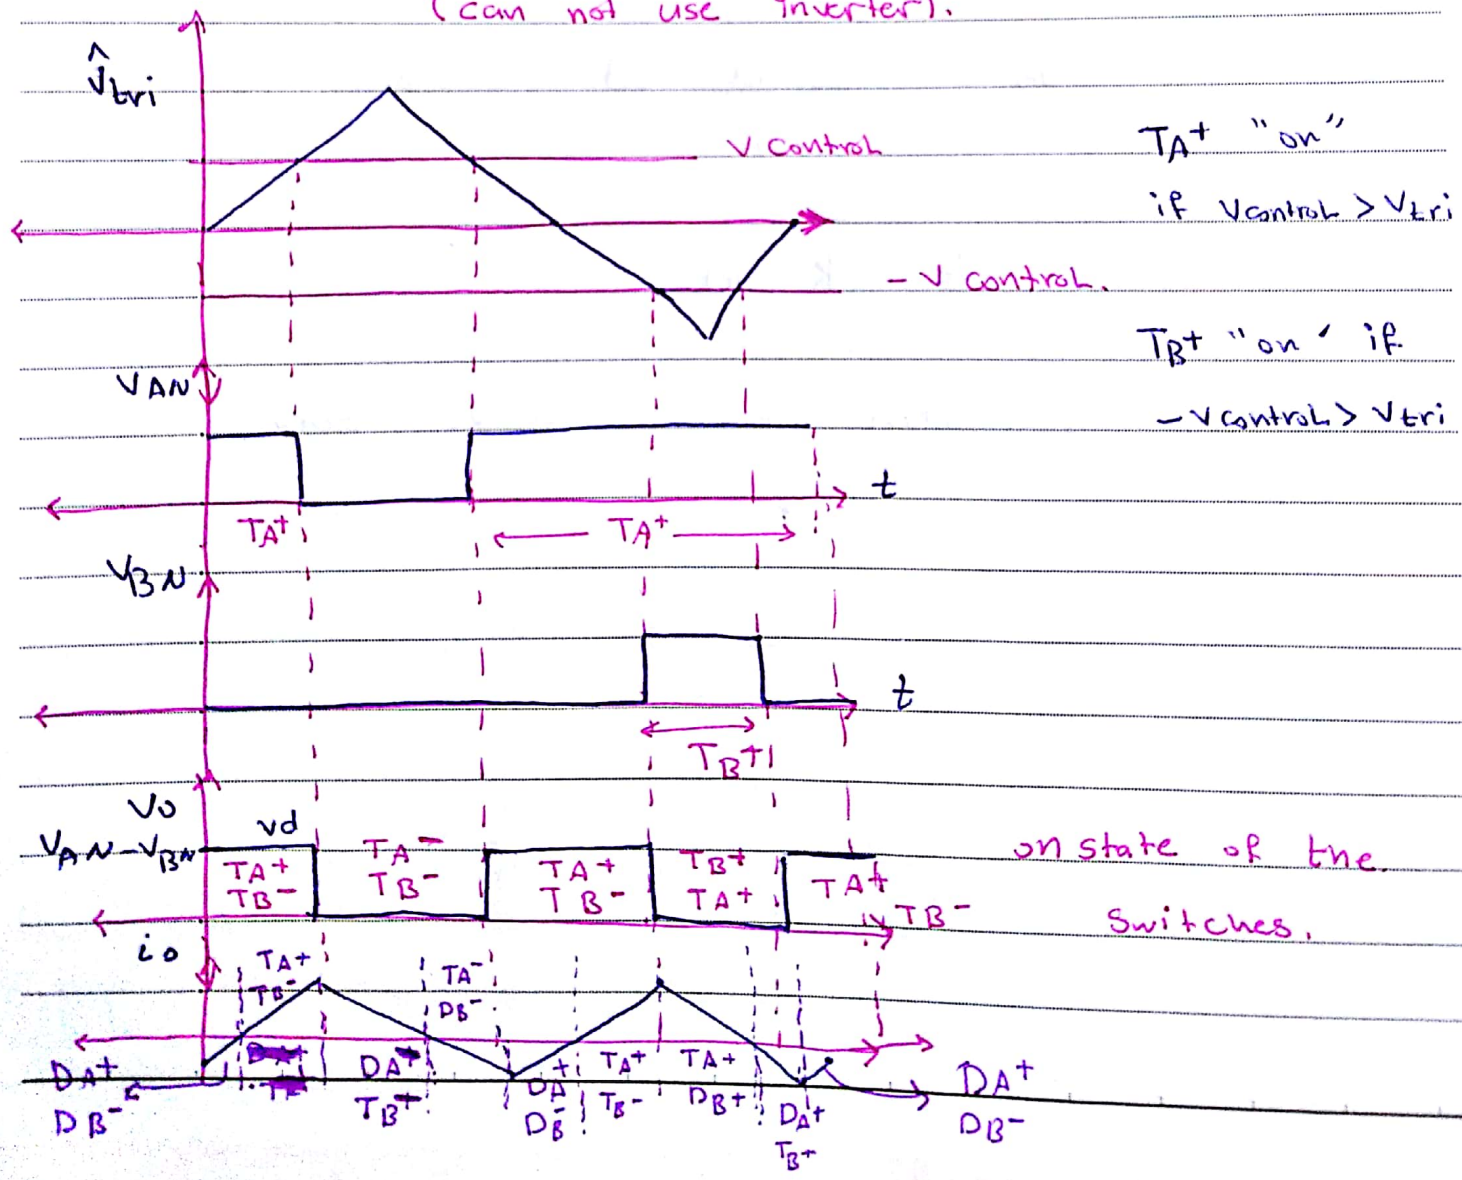 (can not use inverter).
V̂tri
V control
TA+ "on"
if Vcontrol > Vtri
- V control.
TB+ "on" if
- Vcontrol > Vtri
VAN
t
TA+
TA+
VBN
t
TB+
Vo
VAN-VBN
vd
TA+
TB-
TA-
TB-
TA+
TB-
TB+
TA+
TA+
TB-
on state of the
switches.
io
TA+
TB-
TA-
DB-
DA+
DB-
DA+
TB+
DA+
DB-
TA+
TB-
TA+
DB+
DA+
TB+
DA+
DB-